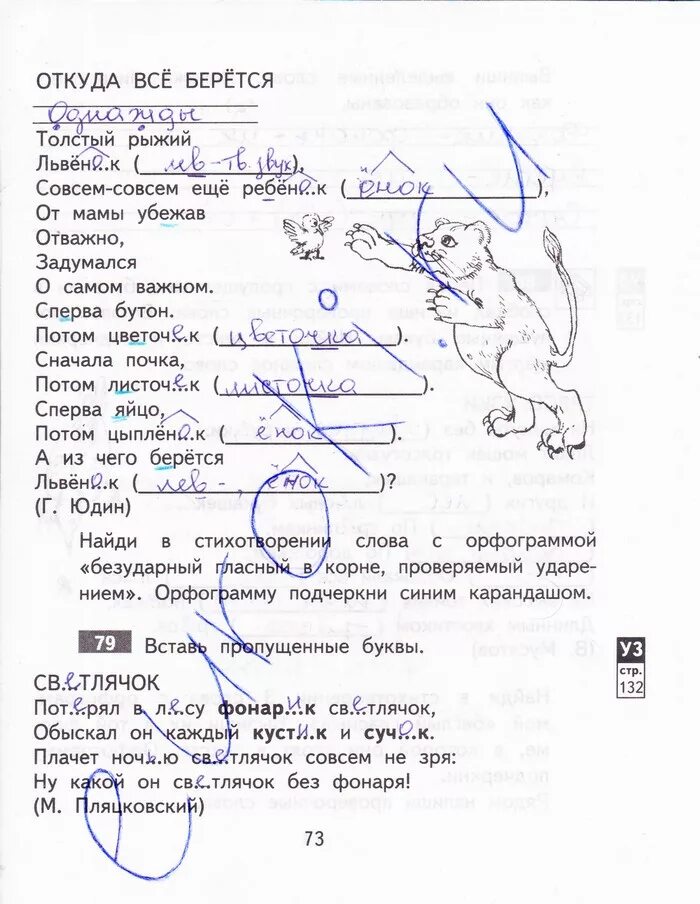 ОТКУДА ВСЁ БЕРЁТСЯ
Однажды
Толстый рыжий
Львёно..к (лев - тв. звук),
Совсем-совсем ещё ребёно..к (ёнок),
От мамы убежав
Отважно,
Задумался
О самом важном.
Сперва бутон.
Потом цветоч..к (цветочка).
Сначала почка,
Потом листоч..к (листочка).
Сперва яйцо,
Потом цыплёно..к (ёнок).
А из чего берётся
Львёно..к (лев-, ёнок)?
(Г. Юдин)
Найди в стихотворении слова с орфограммой
«безударный гласный в корне, проверяемый ударе-
нием». Орфограмму подчеркни синим карандашом.
79 Вставь пропущенные буквы.
УЗ
стр.
132
СВЕТЛЯЧОК
Потерял в лесу фонар..к светлячок,
Обыскал он каждый кустик и сучок.
Плачет ночью светлячок совсем не зря:
Ну какой он светлячок без фонаря!
(М. Пляцковский)
73